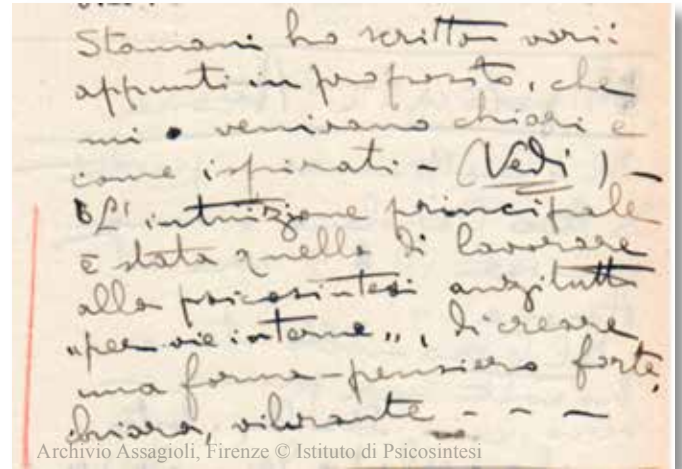 Stamani ho scritto varii
appunti in proposito, che
mi venivano chiari e
come ispirati - (Vedi) -
L'intuizione principale
è stata quella di lavorare
alla psicosintesi anzitutto
"per vie interne", di creare
una forma-pensiero forte,
chiara, vibrante - - -
Archivio Assagioli, Firenze © Istituto di Psicosintesi